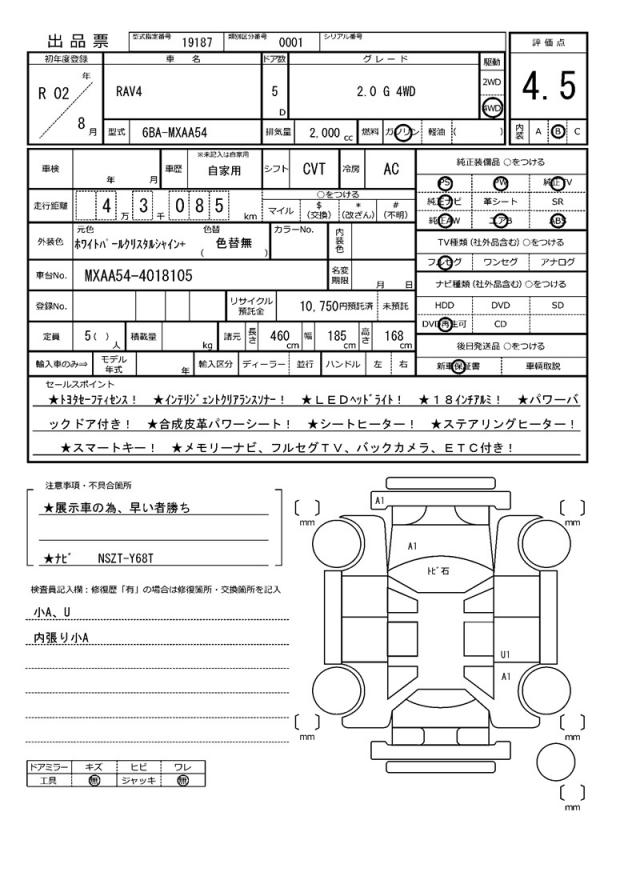 出品票 型式指定番号 19187 類別区分番号 0001 シリアル番号
評価点
4.5
初年度登録 車名 ドア数 グレード 駆動
R 02 年 8 月 RAV4 5 D 2.0 G 4WD 2WD 4WD
型式 6BA-MXAA54 排気量 2,000 cc 燃料 ガソリン 軽油 ( ) 内装 A B C
車検 年 月 車歴 ※未記入は自家用 自家用 シフト CVT 冷房 AC
走行距離 4 万 3 千 0 8 5 km ○をつける
マイル $ (交換) * (改ざん) # (不明)
外装色 元色 ホワイトパールクリスタルシャイン+ 色替 ( 色替無 ) カラーNo. 内装色
車台No. MXAA54-4018105 名変期限 月 日
登録No. リサイクル預託金 10,750円預託済 未預託
定員 5( ) 人 積載量 kg 諸元 長さ 460 cm 幅 185 cm 高さ 168 cm
輸入車のみ⇒ モデル年式 年 輸入区分 ディーラー 並行 ハンドル 左 右
純正装備品 ○をつける
PS PW 純正TV
純正ナビ 革シート SR
純正AW エアB ABS
TV種類 (社外品含む) ○をつける
フルセグ ワンセグ アナログ
ナビ種類 (社外品含む) ○をつける
HDD DVD SD
DVD再生可 CD
後日発送品 ○をつける
新車保証書 車輌取説
セールスポイント
★トヨタセーフティセンス！ ★インテリジェントクリアランスソナー！ ★ＬＥＤヘッドライト！ ★１８インチアルミ！ ★パワーバ
ックドア付き！ ★合成皮革パワーシート！ ★シートヒーター！ ★ステアリングヒーター！
★スマートキー！ ★メモリーナビ、フルセグＴＶ、バックカメラ、ＥＴＣ付き！
注意事項・不具合箇所
★展示車の為、早い者勝ち
★ナビ NSZT-Y68T
検査員記入欄：修復歴「有」の場合は修復箇所・交換箇所を記入
小A、U
内張り小A
ドアミラー キズ ヒビ ワレ
工具 無 ジャッキ 無
A1
mm
mm
A1
トビ石
U1
A1
mm
mm
mm